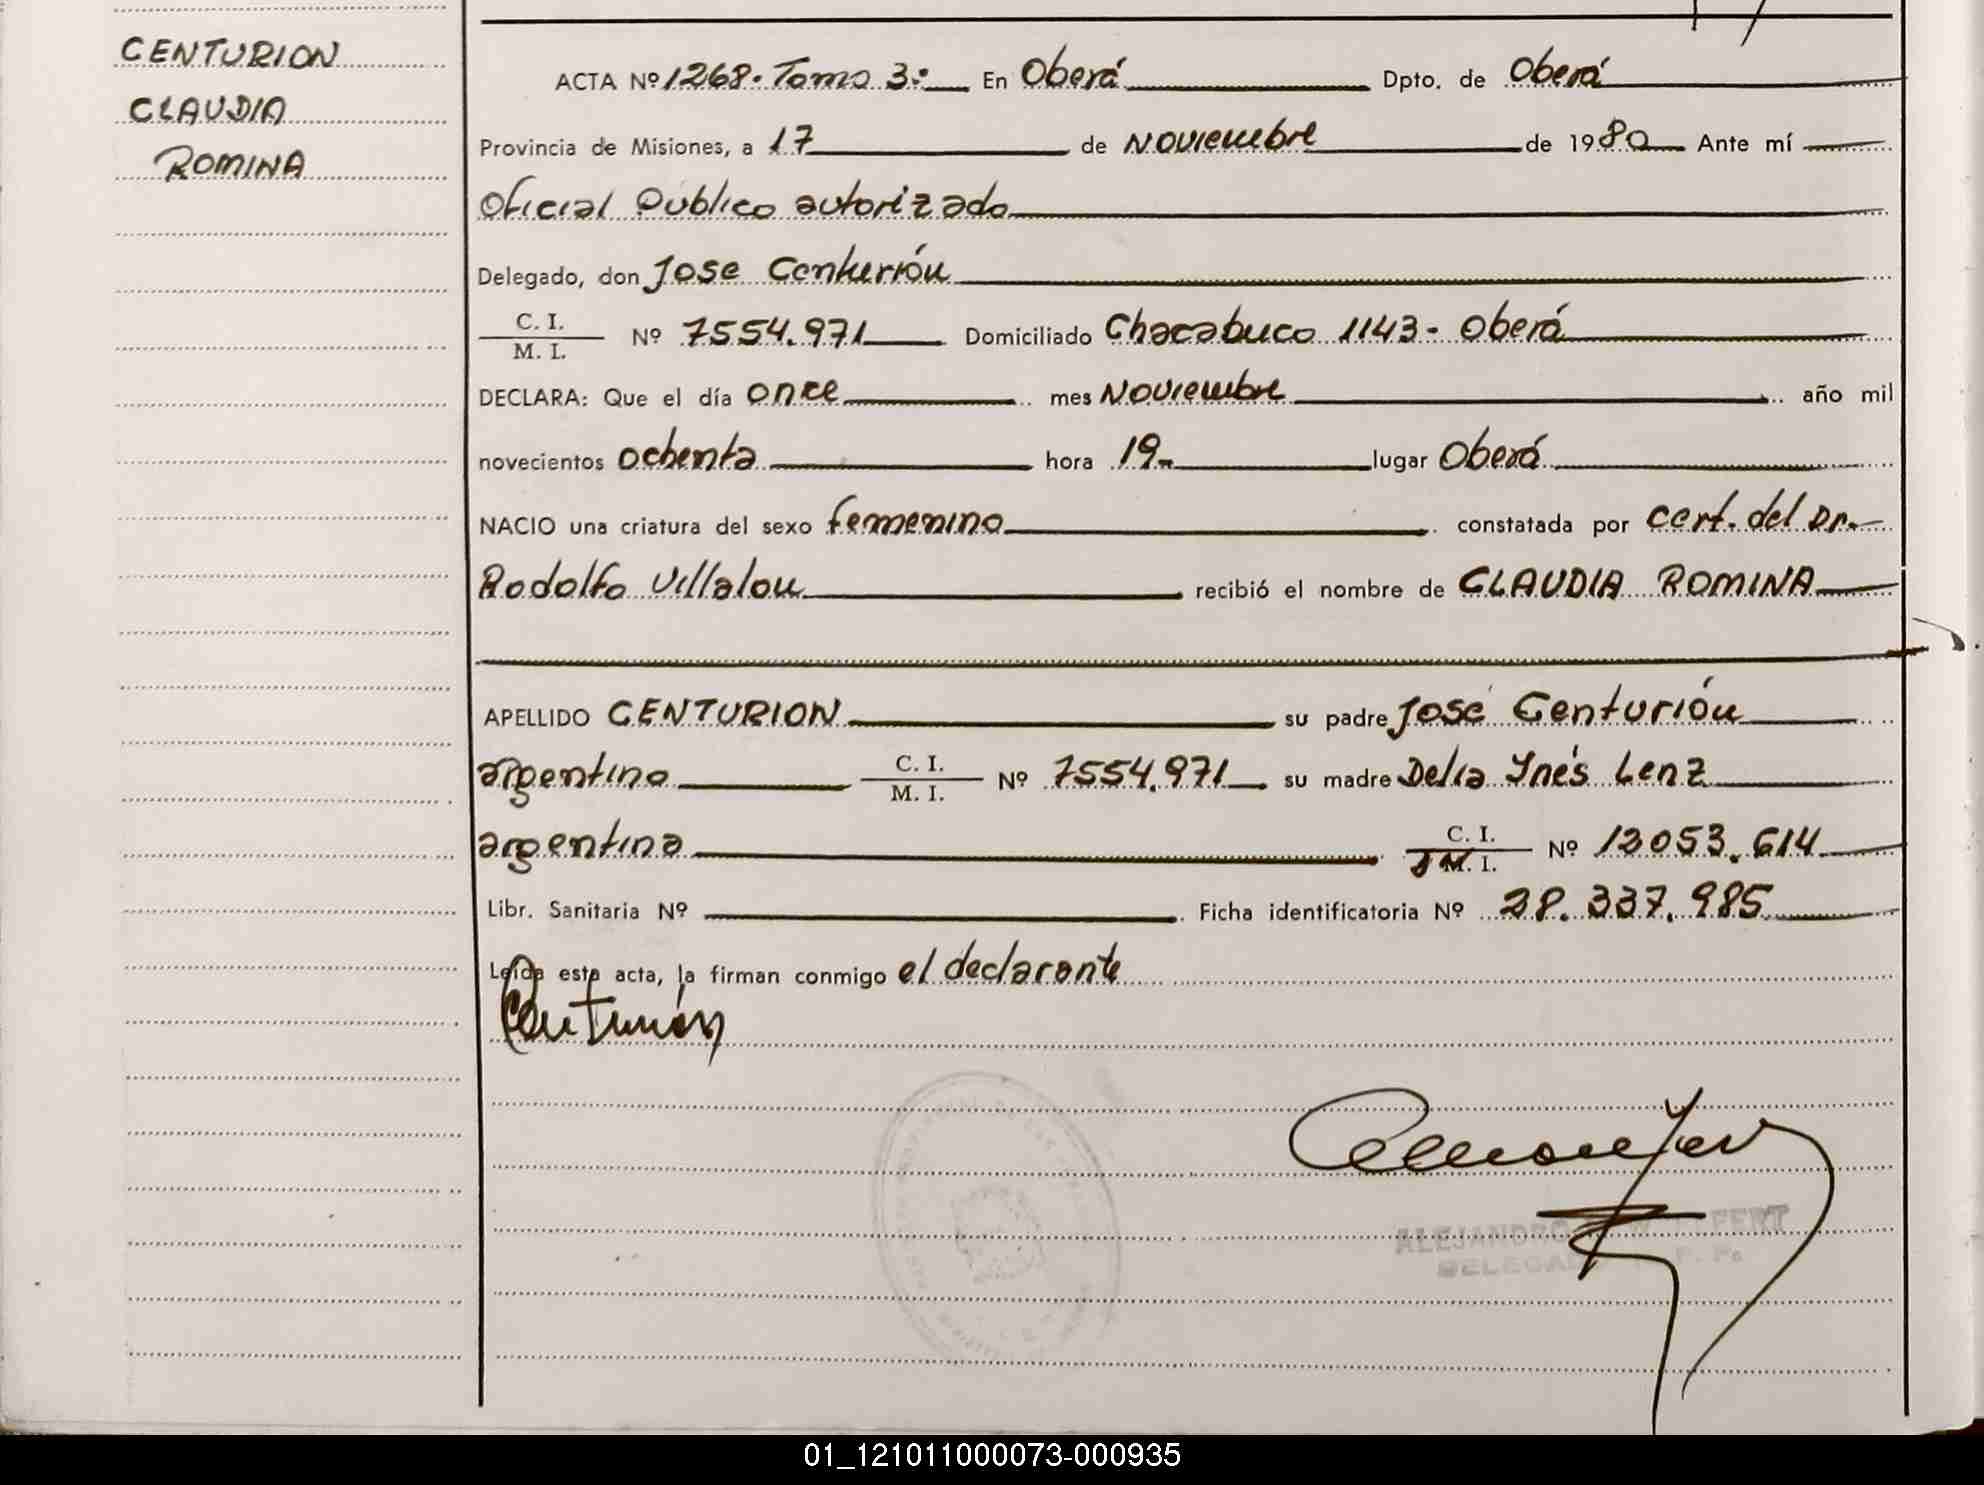 CENTURION
CLAUDIA
ROMINA
ACTA Nº 1268. Tomo 3º En Oberá Dpto. de Oberá
Provincia de Misiones, a 17 de Noviembre de 1980 Ante mí
Oficial Publico autorizado
Delegado, don Jose Centurión
C. I. / M. I. Nº 7554.971 Domiciliado Chacabuco 1143 - Oberá
DECLARA: Que el día once mes Noviembre año mil
novecientos ochenta hora 19 lugar Oberá
NACIO una criatura del sexo femenino constatada por cert. del Dr.
Rodolfo Villalou recibió el nombre de CLAUDIA ROMINA
APELLIDO CENTURION su padre José Centurión
argentino C. I. / M. I. Nº 7554.971 su madre Delia Ynés Lenz
argentina C. I. / M. I. Nº 12053.614
Libr. Sanitaria Nº Ficha identificatoria Nº 28.337.985
Leída esta acta, la firman conmigo el declarante
Centurión
ALEJANDRO
01_121011000073-000935